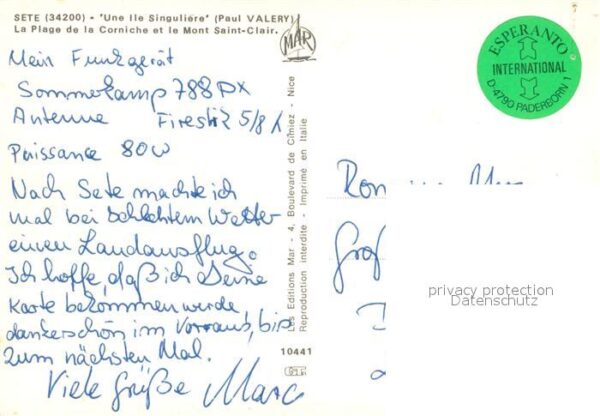 SETE (34200) - "Une Ile Singulière" (Paul VALERY)
La Plage de la Corniche et le Mont Saint-Clair.
MAR
Mein Funkgerät
Sommerkamp 788 DX
Antenne Firestik 5/8 λ
Puissance 80W
Nach Sete machte ich
mal bei schlechtem Wetter
einen Landausflug.
Ich hoffe, daß ich Deine
Karte bekommen werde,
dankeschön im Vorraus, bis
zum nächsten Mal.
Viele Grüße Marc
Les Editions Mar - 4, Boulevard de Cimiez - Nice
Reproduction interdite - Imprimé en Italie
10441
ESPERANTO
INTERNATIONAL
D-4790 PADERBORN 1
privacy protection
Datenschutz